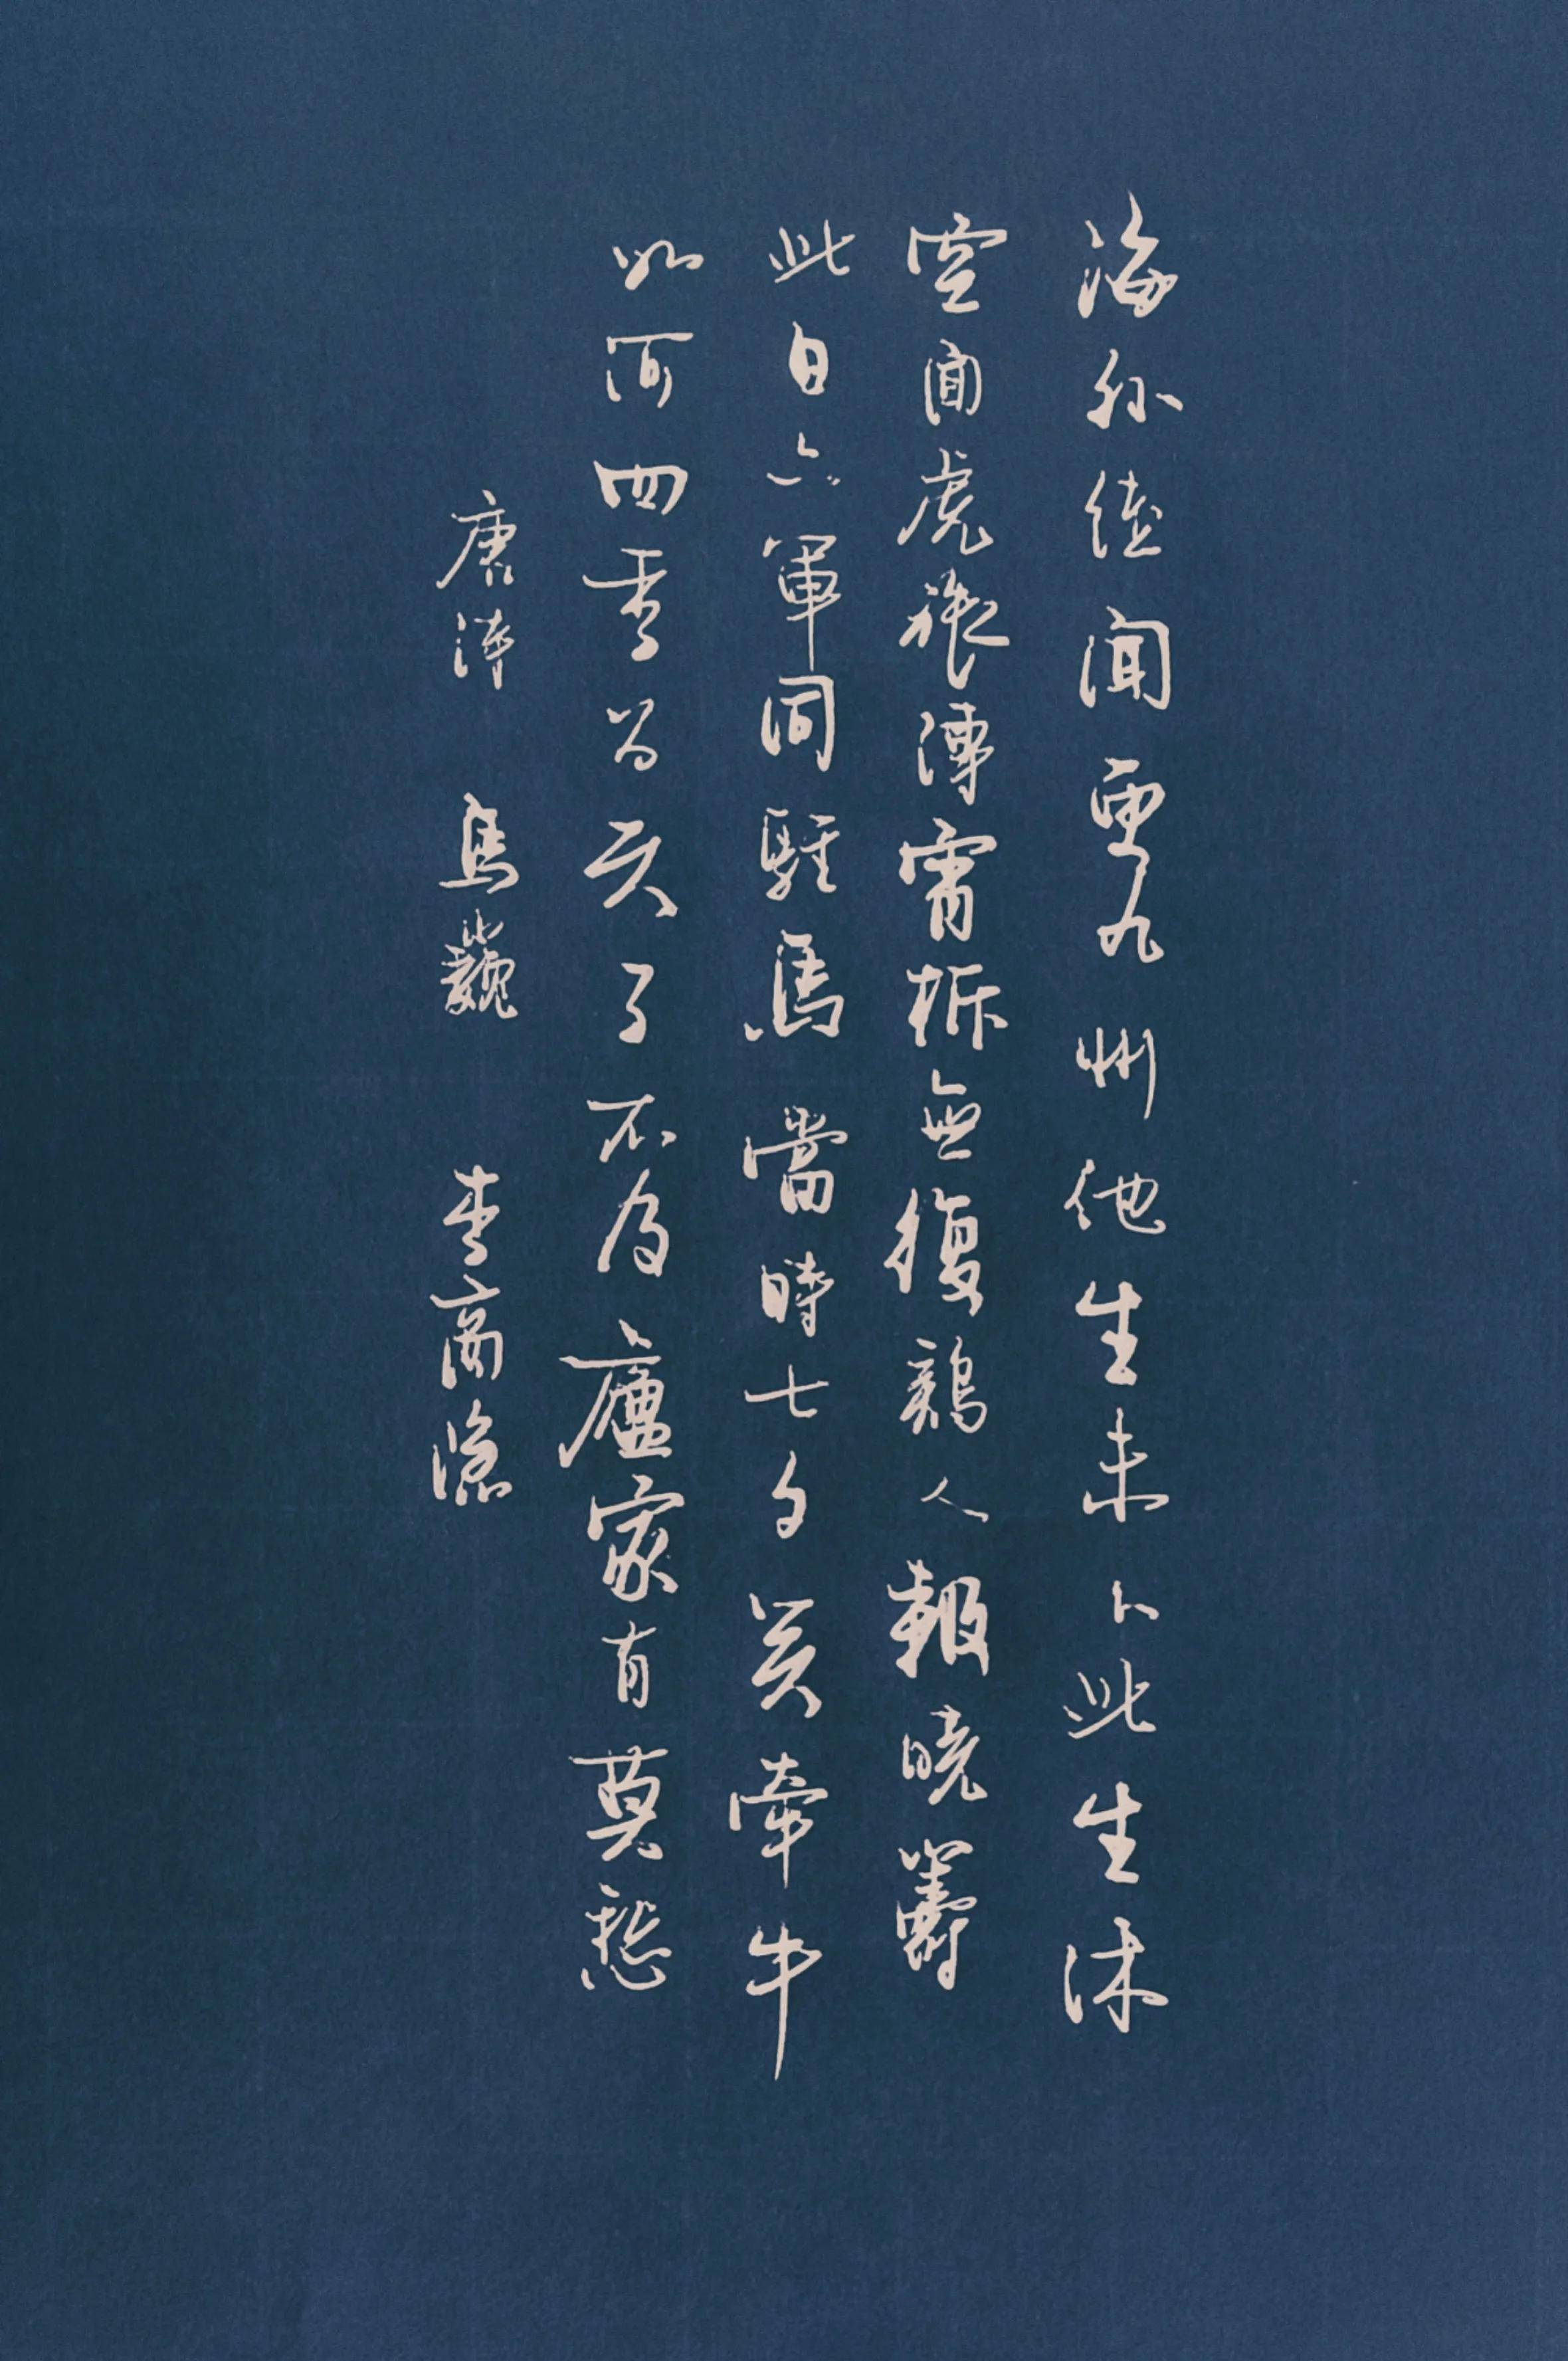 海外徒聞更九州他生未卜此生休
空聞虎旅傳宵柝無復鷄人報曉籌
此日六軍同駐馬當時七夕笑牽牛
如何四季為天子不及廬家有莫愁
唐詩 馬嵬 李商隱